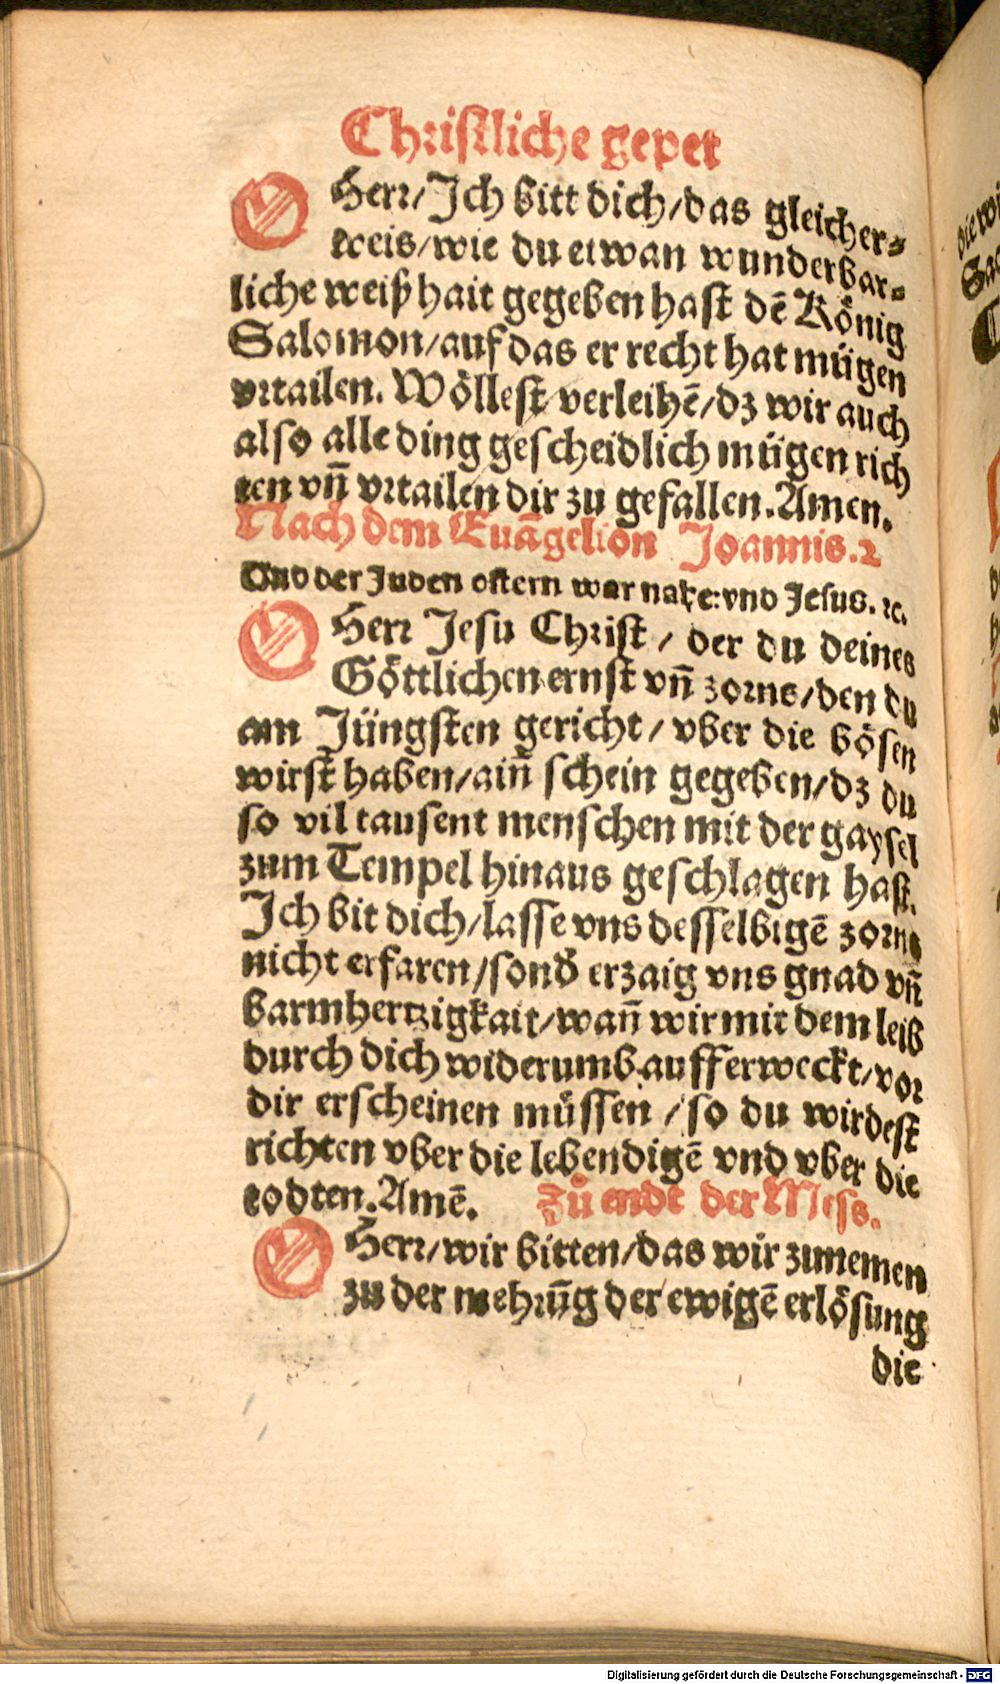 Christliche gepet
O Herr/ Jch bitt dich/ das gleicher-
weis/ wie du etwan wunderbar-
liche weißhait gegeben hast dē König
Salomon/ auf das er recht hat mügen
vrtailen. Wöllest verleihē/ dz wir auch
also alle ding gescheidlich mügen rich
ten vñ vrtailen dir zu gefallen. Amen.
Nach dem Euāgelion Joannis. 2
Vnd der Juden ostern war nahe: vnd Jesus. ꝛc.
O Herr Jesu Christ / der du deines
Göttlichen ernst vñ zorns/ den du
am Jüngsten gericht/ vber die bösen
wirst haben/ ainñ schein gegeben/ dz du
so vil tausent menschen mit der gaysel
zum Tempel hinaus geschlagen hast.
Jch bit dich/ lasse vns desselbigē zorns
nicht erfaren/ sond̄ erzaig vns gnad vñ
barmhertzigkait/ wañ wir mit dem leib
durch dich widerumb aufferweckt/ vor
dir erscheinen müssen / so du wirdest
richten vber die lebendigē vnd vber die
todten. Amē. Zů ende der Mess.
O Herr/ wir bitten/ das wir zunemen
zu der mehrūg der ewigē erlösung
die
Digitalisierung gefördert durch die Deutsche Forschungsgemeinschaft - DFG